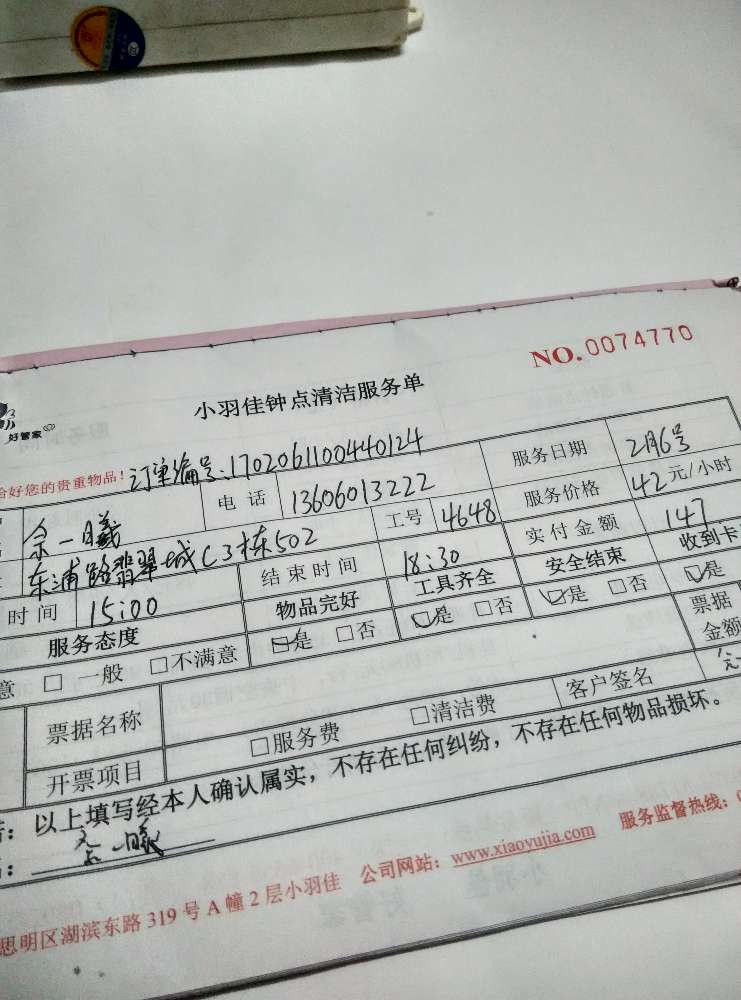 NO.0074770
小羽佳钟点清洁服务单
好管家
好您的贵重物品！订单编号：170206110044 0124
余一曦 电话 13606013222 服务日期 2月6号
东浦路翡翠城C3栋502 工号 4648 服务价格 42元/小时
时间 15:00 结束时间 18:30 实付金额 147
服务态度 物品完好 工具齐全 安全结束 收到卡
意 □ 一般 □不满意 ☑是 □否 ☑是 □否 ☑是 □否 ☑是
票据名称 票据
金额
开票项目 □服务费 □清洁费 客户签名
：以上填写经本人确认属实，不存在任何纠纷，不存在任何物品损坏。
思明区湖滨东路319号A幢2层小羽佳 公司网站：www.xiaoyujia.com 服务监督热线：